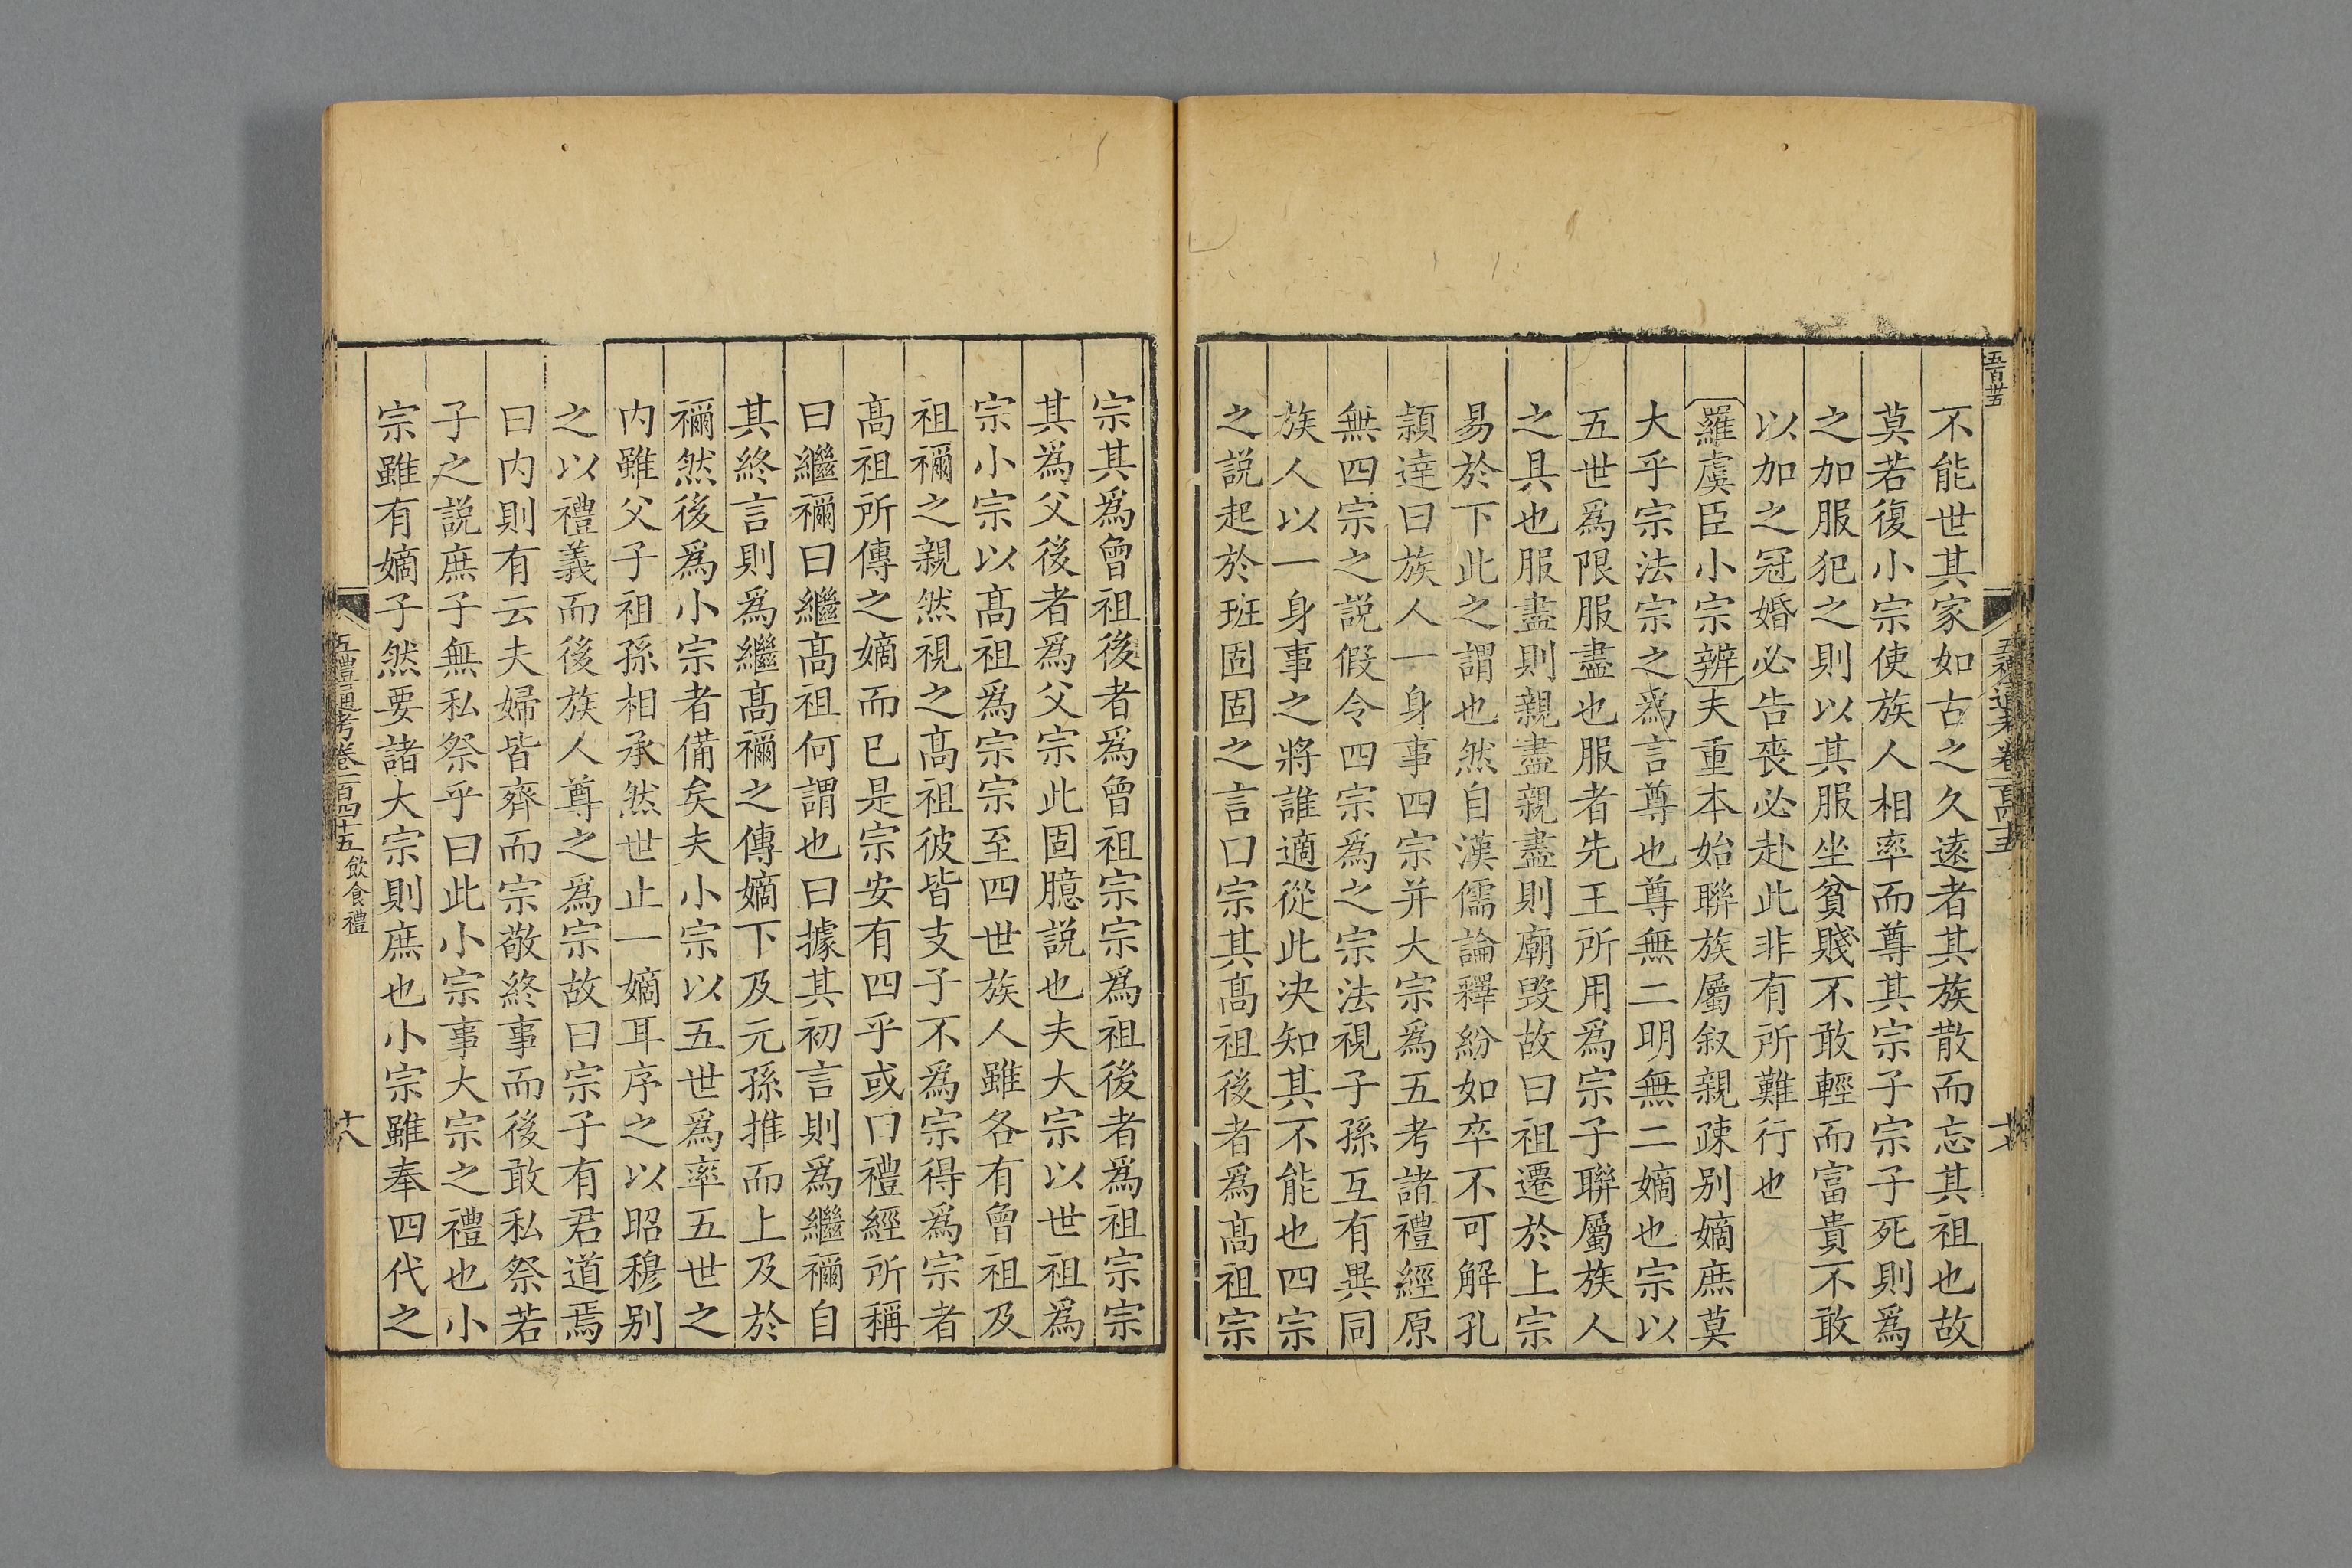 不能世其家如古之久遠者其族散而忘其祖也故
莫若復小宗使族人相率而尊其宗子宗子死則爲
之加服犯之則以其服坐貧賤不敢輕而富貴不敢
以加之冠婚必告喪必赴此非有所難行也
羅虞臣小宗辨夫重本始聯族屬叙親疎别嫡庶莫
大乎宗法宗之爲言尊也尊無二明無二嫡也宗以
五世爲限服盡也服者先王所用爲宗子聯屬族人
之具也服盡則親盡親盡則廟毁故曰祖遷於上宗
易於下此之謂也然自漢儒論釋紛如卒不可解孔
頴逹曰族人一身事四宗并大宗爲五考諸禮經原
無四宗之説假令四宗爲之宗法視子孫互有異同
族人以一身事之將誰適從此决知其不能也四宗
之説起於班固固之言曰宗其髙祖後者爲髙祖宗
宗其爲曾祖後者爲曾祖宗宗爲祖後者爲祖宗宗
其爲父後者爲父宗此固臆説也夫大宗以世祖爲
宗小宗以髙祖爲宗宗至四世族人雖各有曾祖及
祖禰之親然視之髙祖彼皆支子不爲宗得爲宗者
髙祖所傳之嫡而已是宗安有四乎或曰禮經所稱
曰繼禰曰繼髙祖何謂也曰據其初言則爲繼禰自
其終言則爲繼髙禰之傳嫡下及元孫推而上及於
禰然後爲小宗者備矣夫小宗以五世爲率五世之
内雖父子祖孫相承然世止一嫡耳序之以昭穆别
之以禮義而後族人尊之爲宗故曰宗子有君道焉
曰内則有云夫婦皆齊而宗敬終事而後敢私祭若
子之説庶子無私祭乎曰此小宗事大宗之禮也小
宗雖有嫡子然要諸大宗則庶也小宗雖奉四代之
五禮通考卷一百四十五 飲食禮
十八